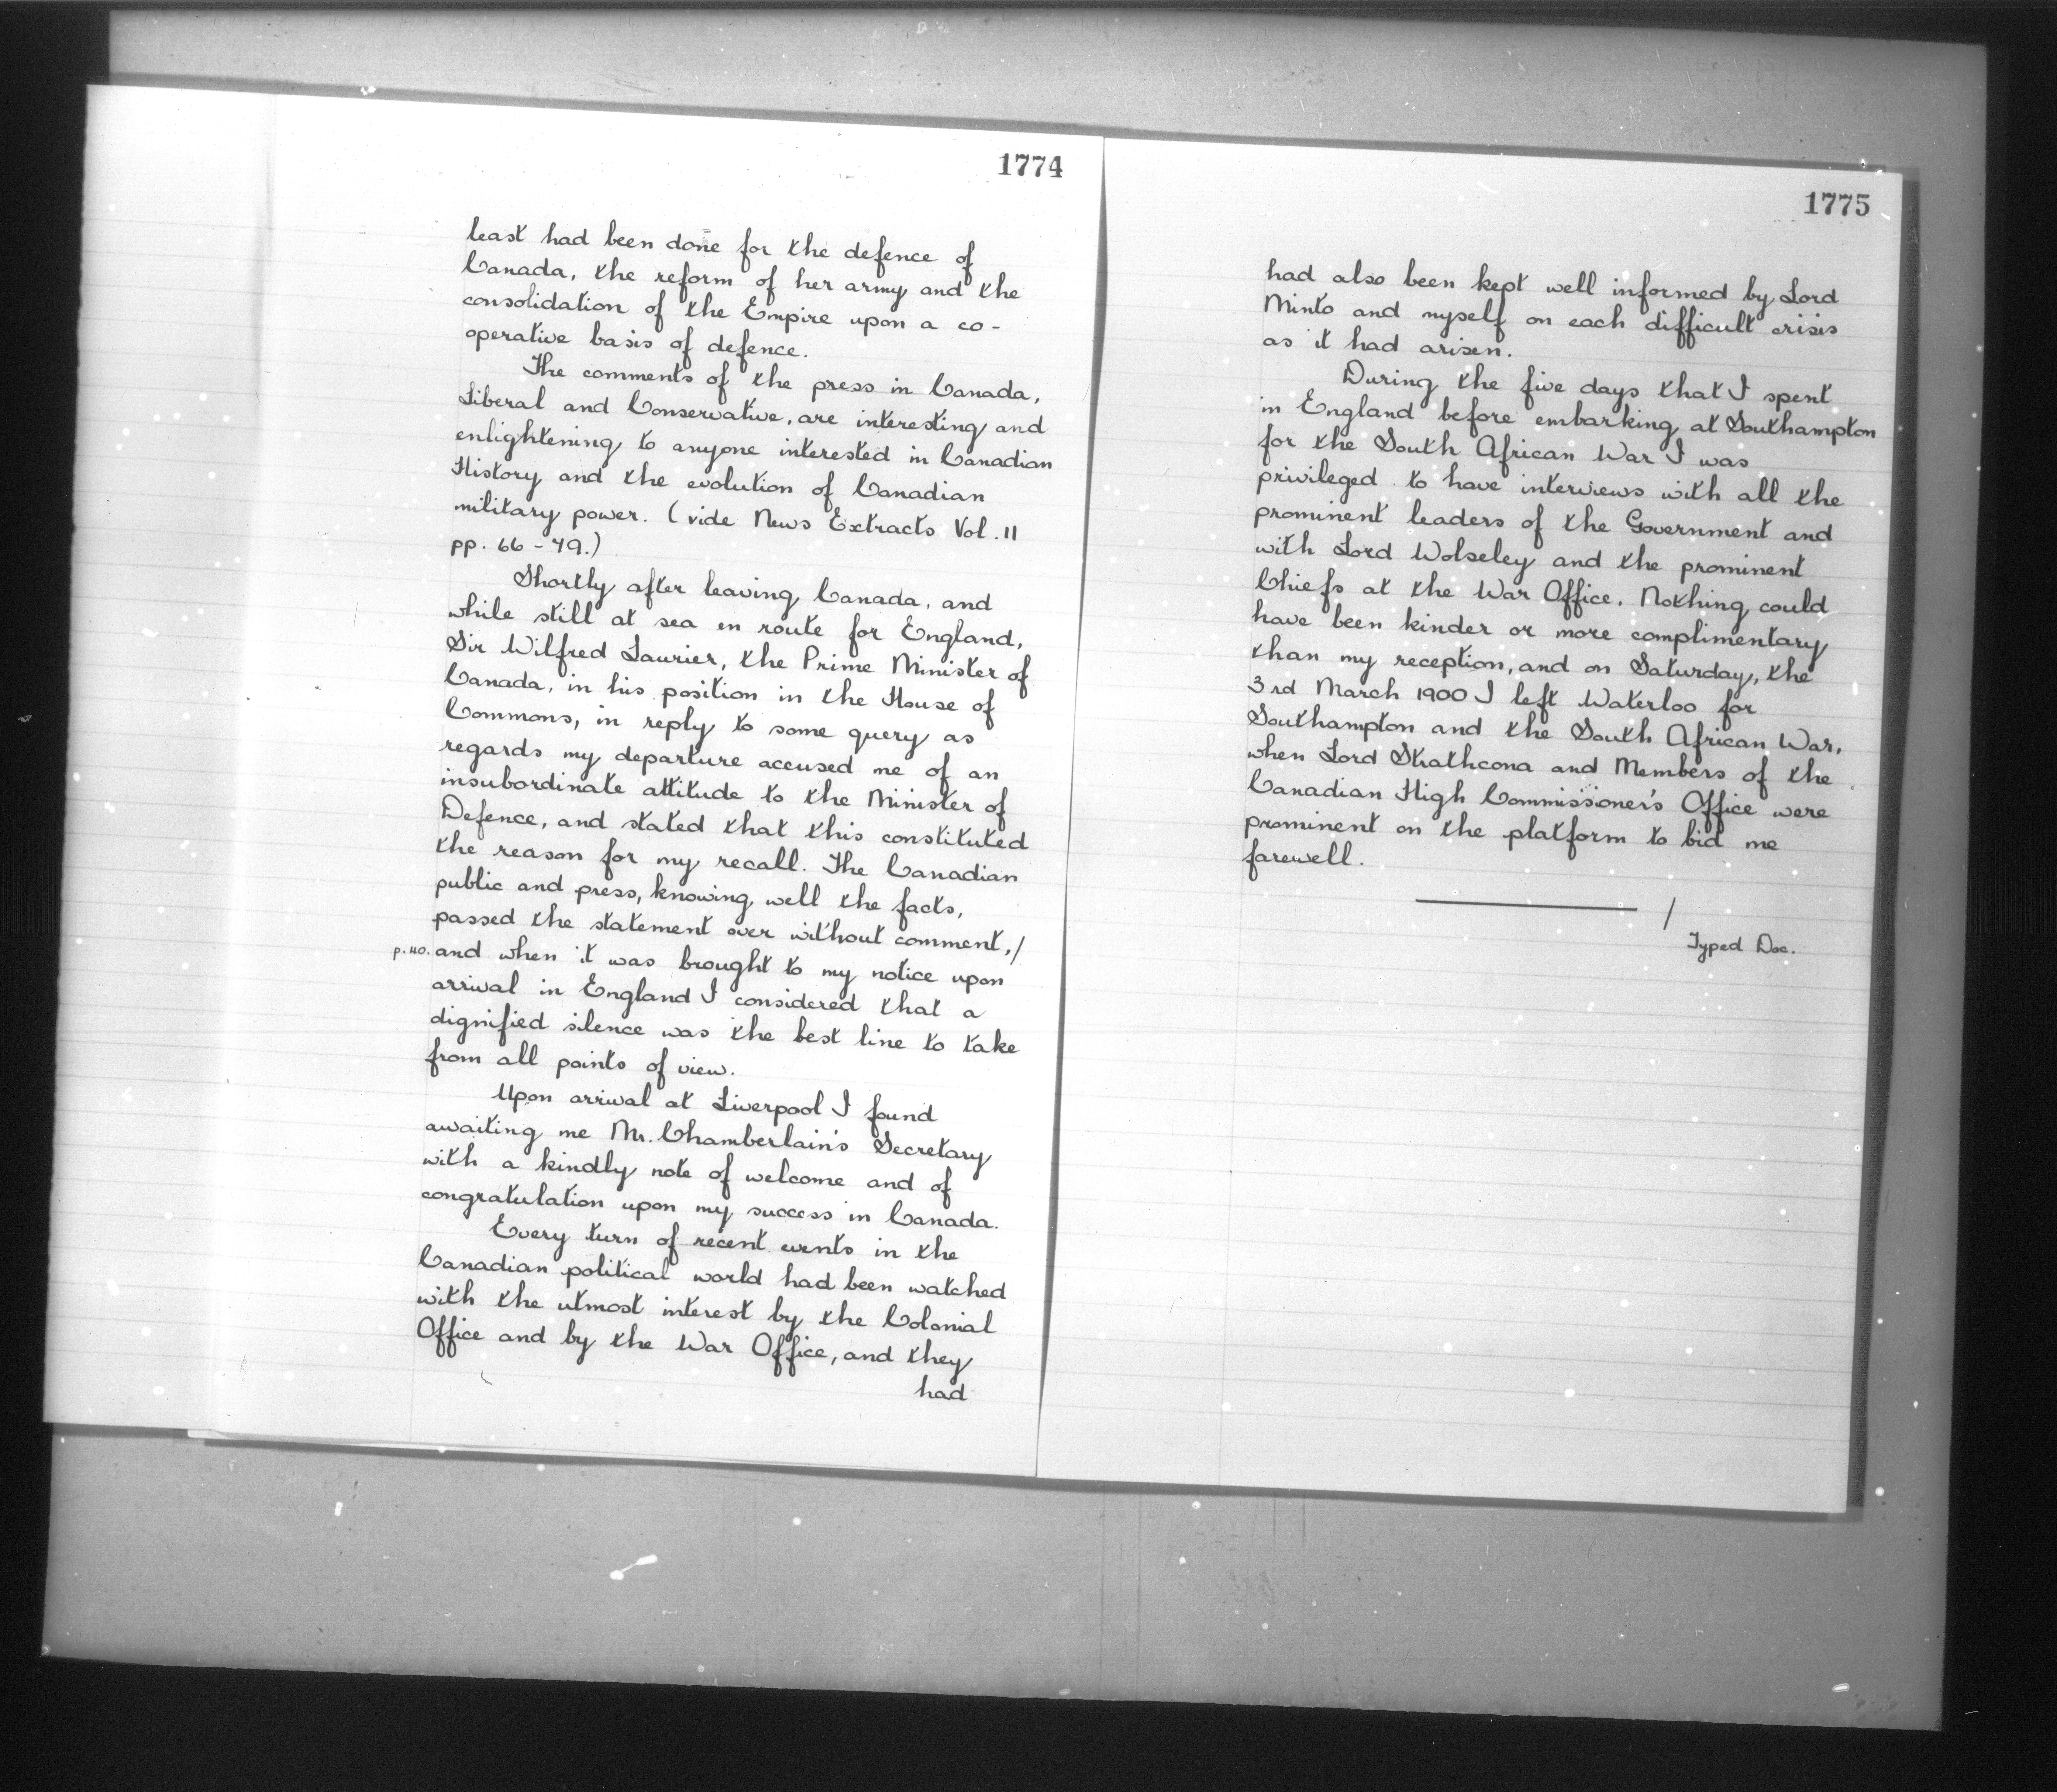 1774
least had been done for the defence of
Canada, the reform of her army and the
consolidation of the Empire upon a co-
operative basis of defence.
The comments of the press in Canada,
Liberal and Conservative, are interesting and
enlightening to anyone interested in Canadian
History and the evolution of Canadian
military power. (vide News Extracts Vol. 11
pp. 66 - 79.)
Shortly after leaving Canada, and
while still at sea en route for England,
Sir Wilfred Laurier, the Prime Minister of
Canada, in his position in the House of
Commons, in reply to some query as
regards my departure accused me of an
insubordinate attitude to the Minister of
Defence, and stated that this constituted
the reason for my recall. The Canadian
public and press, knowing well the facts,
passed the statement over without comment,/
p.40. and when it was brought to my notice upon
arrival in England I considered that a
dignified silence was the best line to take
from all points of view.
Upon arrival at Liverpool I found
awaiting me Mr. Chamberlain's Secretary
with a kindly note of welcome and of
congratulation upon my success in Canada.
Every turn of recent events in the
Canadian political world had been watched
with the utmost interest by the Colonial
Office and by the War Office, and they
had
1775
had also been kept well informed by Lord
Minto and myself on each difficult crisis
as it had arisen.
During the five days that I spent
in England before embarking at Southampton
for the South African War I was
privileged to have interviews with all the
prominent leaders of the Government and
with Lord Wolseley and the prominent
Chiefs at the War Office. Nothing could
have been kinder or more complimentary
than my reception, and on Saturday, the
3rd March 1900 I left Waterloo for
Southampton and the South African War,
when Lord Strathcona and Members of the
Canadian High Commissioner's Office were
prominent on the platform to bid me
farewell.
/
Typed Doc.